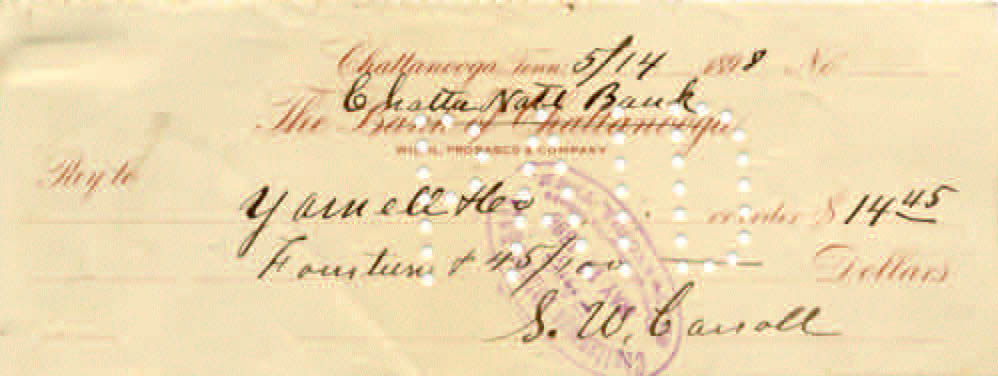 Chattanooga, Tenn. 5/14 1898 No
Chatta Natl Bank
The Bank of Chattanooga
WM. N. PROBASCO & COMPANY
Pay to
or order $ 14 45
Fourteen & 45/100 Dollars
S. W. Carroll
PAID